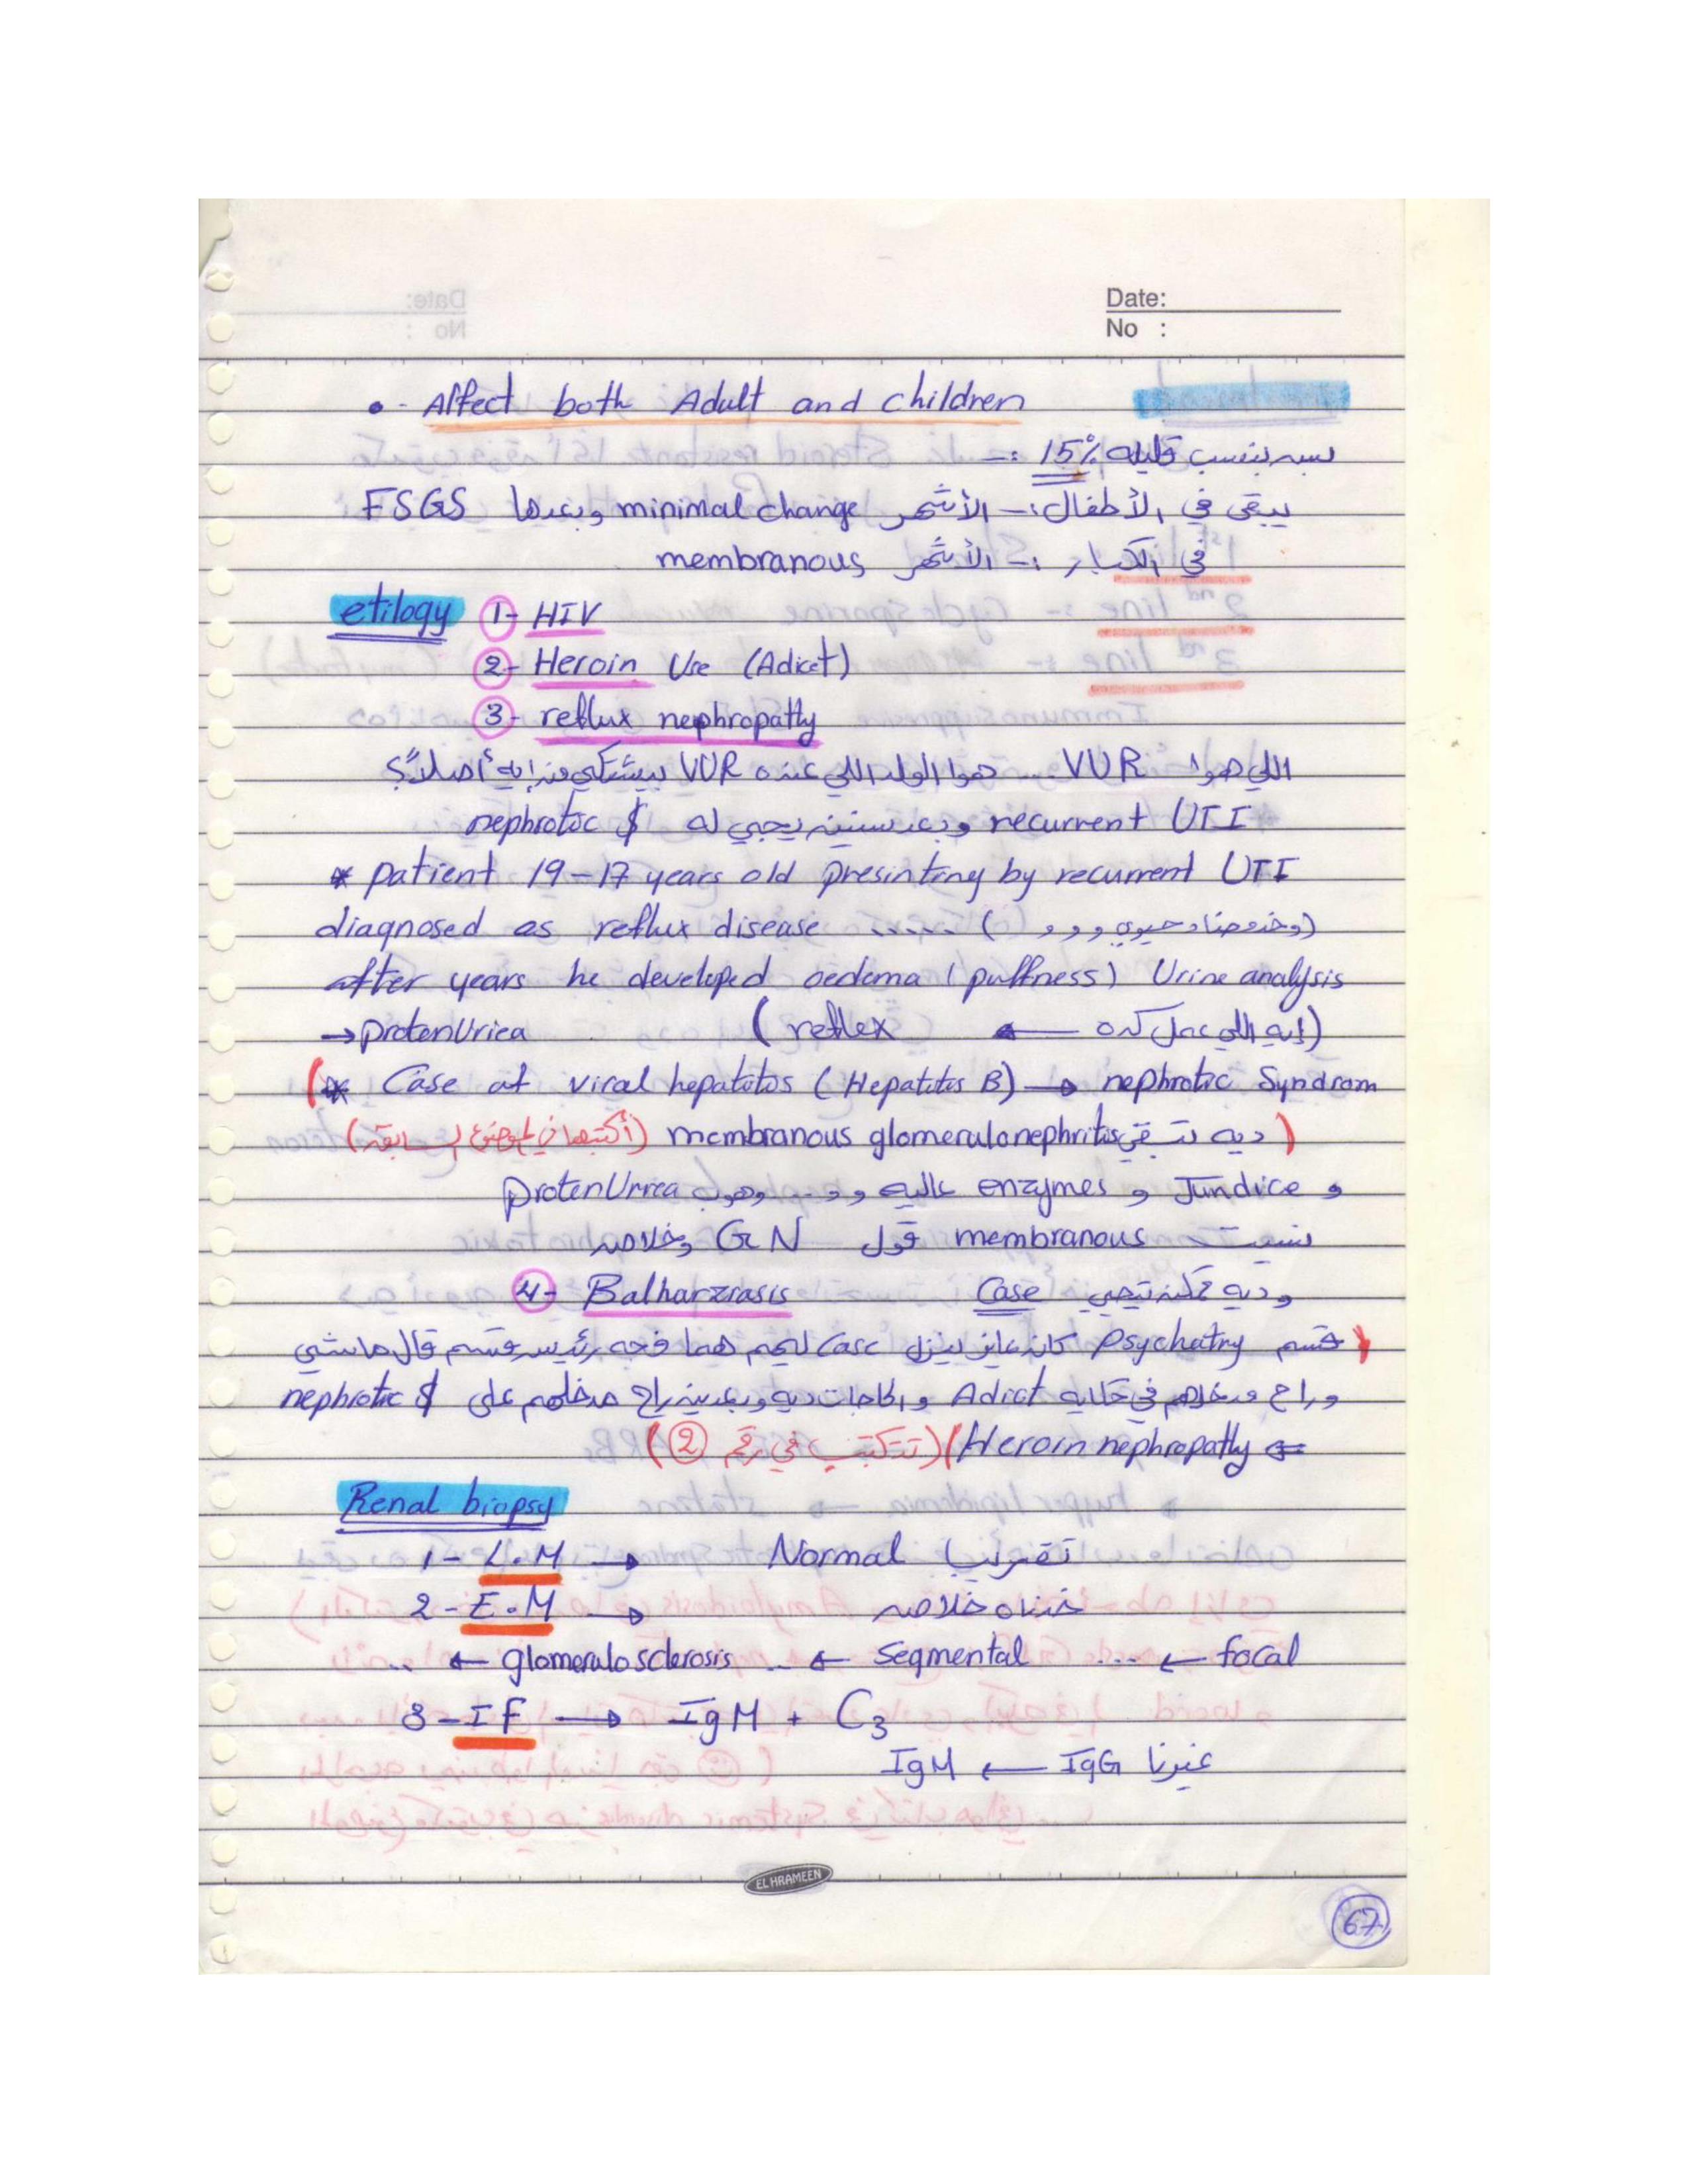 Date:
No :
• - Affect both Adult and children
بس بنسب قليله 15% :-
يبقى في الأطفال :- الأشهر minimal change وبعدها FSGS
في الكبار :- الأشهر membranous
etilogy 1- HIV
2- Heroin Use (Adict)
3- reflux nephropathy
اللي هوا VUR ... هوا الولد اللي عنده VUR بيشتكي من إيه أصلاً؟
recurrent UTI وبعد سنين يجي له nephrotic $
* patient 19-17 years old presinting by recurrent UTI
diagnosed as reflux disease ..... ( وخد مضاد حيوي و و و)
after years he developed oedema (puffness) Urine analysis
→ protenUriea (إيه اللي عمل كده ← reflex)
(* Case of viral hepatitos (Hepatitis B) → nephrotic Syndrom
ديه تبقى membranous glomerulonephritis) (أكتبها في الموضوع السابق)
و Jundice و enzymes عاليه و و .. وهوب protenUrrea
نسيت membranous قول GN وخلاص
4- Balharziasis وديه ممكن تيجي Case
(قسم Psychatry كان عايز ينزل Case ليهم هما فجه رئيس قسم قال ماشي
وراح مدخلهم في حكاية Adict والحاجات ديه وبعدين راح مدخلهم على nephrotic $
← Heroin nephropathy) (تتكتب في رقم 2)
Renal biopsy
1- L.M → Normal تقريبا
2- E.M → خدناه خلاص
focal ← ... Segmental ← .. glomerulosclerosis ← ..
3- IF → IgM + C3
غيرنا IgG ← IgM
EL HRAMEEN
67